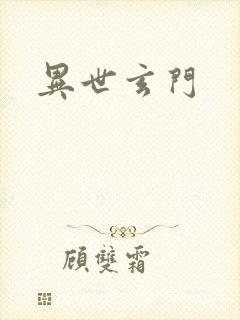 異世玄門
顧雙霜